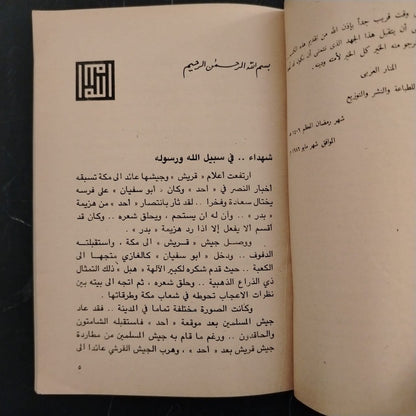 وقت قريب جدا بإذن الله من تقديم هذه
أن يتقبل هذا الجهد الذى نتمنى أن يكون
نرجو منه الخير كل الخير لأمته ودينه .
المنار العربى
للطباعة والنشر والتوزيع
شهر رمضان المعظم ١٤٠٦ هـ
الموافق شهر مايو ١٩٨٦ م
بسم الله الرحمن الرحيم
شهداء .. في سبيل الله ورسوله
ارتفعت أعلام « قريش » وجيشها عائد الى مكة تسبقه
أخبار النصر في « أحد » وكان « أبو سفيان » على فرسه
يختال سعادة وفخرا .. لقد ثأر بانتصار « أحد » من هزيمة
« بدر » .. وآن له ان يستحم ، ويحلق شعره .. وكان قد
أقسم الا يفعل إلا اذا رد هزيمة « بدر » .
ووصل جيش « قريش » الى مكة ، واستقبلته
الدفوف .. ودخل « أبو سفيان » كالغازي متجها الى
الكعبة .. حيث قدم شكره لكبير الآلهة « هبل » ذلك التمثال
ذي الذراع الذهبية .. وحلق شعره ، ثم اتجه الى بيته بين
نظرات الاعجاب تحوطه في شعاب مكة وطرقاتها .
وكانت الصورة مختلفة تماما في المدينة .. فقد عاد
جيش المسلمين بعد موقعة « أحد » فاستقبله الشامتون
والحاقدون .. ورغم ما قام به جيش المسلمين من مطاردة
جيش قريش بعد « أحد » ، وهرب الجيش القرشي عائدا الى
٥